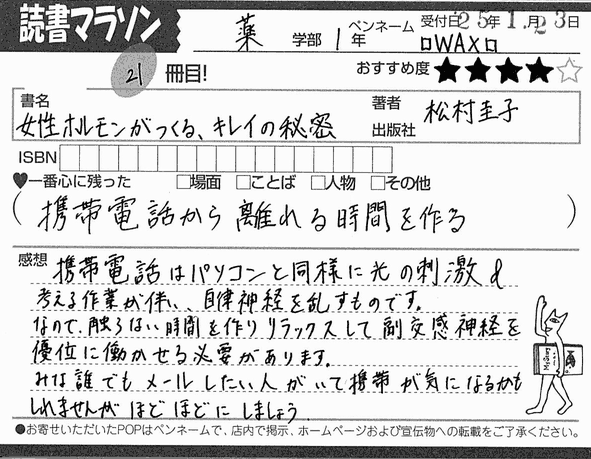 読書マラソン
薬 学部 1年
ペンネーム □WAX□
受付日 25年1月23日
21 冊目!
おすすめ度 ★★★★☆
書名
女性ホルモンがつくる、キレイの秘密
著者 松村圭子
出版社
ISBN
♥一番心に残った □場面 □ことば □人物 □その他
(携帯電話から離れる時間を作る)
感想 携帯電話はパソコンと同様に光の刺激&
考える作業が伴い、自律神経を乱すものです。
なので、触らない時間を作りリラックスして副交感神経を
優位に働かせる必要があります。
みな誰でもメールしたい人がいて携帯が気になるかも
しれませんがほどほどにしましょう.
●お寄せいただいたPOPはペンネームで、店内で掲示、ホームページおよび宣伝物への転載をご了承ください。